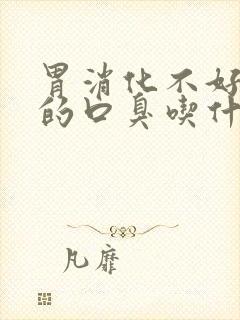 胃消化不好
的口臭喫什
凡靡